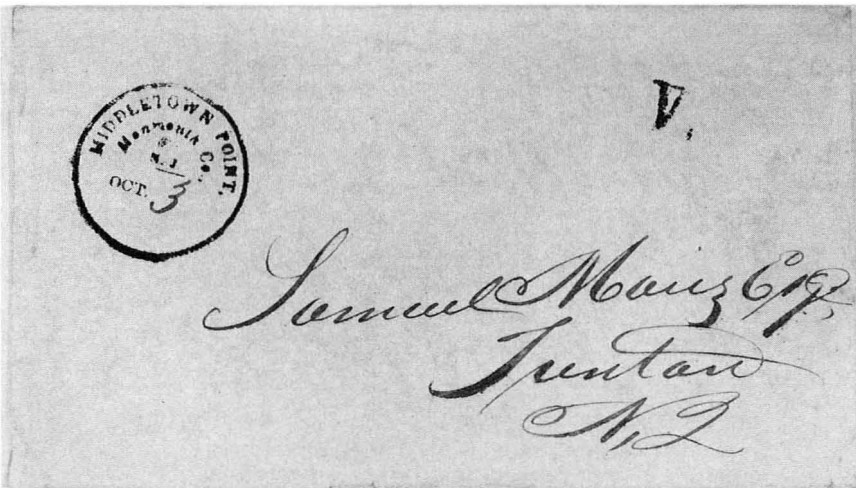 MIDDLETOWN POINT.
Monmouth Co.
N.J
OCT. 3
V.
Samuel Esq.
Trenton
N,J